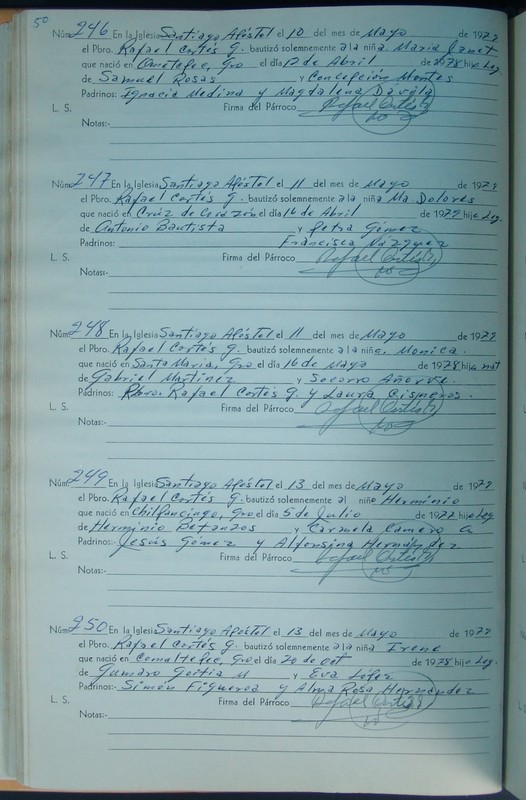 50
Núm. 246 En la Iglesia Santiago Apóstol el 10 del mes de Mayo de 1979
el Pbro. Rafael Cortés G. bautizó solemnemente a la niña Maria Janet
que nació en Ometepec, Gro el día 12 de Abril de 1978 hija Leg.
de Samuel Rosas y Concepción Montes
Padrinos: Ignacia Medina y Magdalena Davila
L. S. Firma del Párroco Rafael Cortés G
Notas:
Núm. 247 En la Iglesia Santiago Apóstol el 11 del mes de Mayo de 1979
el Pbro. Rafael Cortés G. bautizó solemnemente a la niña Ma Dolores
que nació en Cruz de el día 16 de Abril de 1979 hija Leg.
de Antonio Bautista y Petra Gómez
Padrinos: Francisca Vázquez
L. S. Firma del Párroco Rafael Cortés G
Notas:
Núm. 248 En la Iglesia Santiago Apóstol el 11 del mes de Mayo de 1979
el Pbro. Rafael Cortés G. bautizó solemnemente a la niña. Monica.
que nació en Santa Maria, Gro el día 16 de Mayo de 1978 hija nat
de Gabriel Martinez y Socorro Añorve.
Padrinos: Pbro. Rafael Cortés G. y Laura Cisneros.
L. S. Firma del Párroco Rafael Cortés G
Notas:
Núm. 249 En la Iglesia Santiago Apóstol el 13 del mes de Mayo de 1979
el Pbro. Rafael Cortés G. bautizó solemnemente al niño Herminio
que nació en Chilpancingo, Gro el día 5 de Julio de 1977 hijo Leg
de Herminio Betanzos y Carmela
Padrinos: Jesús Gómez y Alfonsina Hernández
L. S. Firma del Párroco Rafael Cortés G
Notas:
Núm. 250 En la Iglesia Santiago Apóstol el 13 del mes de Mayo de 1979
el Pbro. Rafael Cortés G. bautizó solemnemente a la niña Irene
que nació en Comaltepec, Gro el día 20 de oct de 1978 hija Leg.
de Gumaro M y Eva López
Padrinos: Simón Figueroa y Alma Rosa Hernández
L. S. Firma del Párroco Rafael Cortés G
Notas: